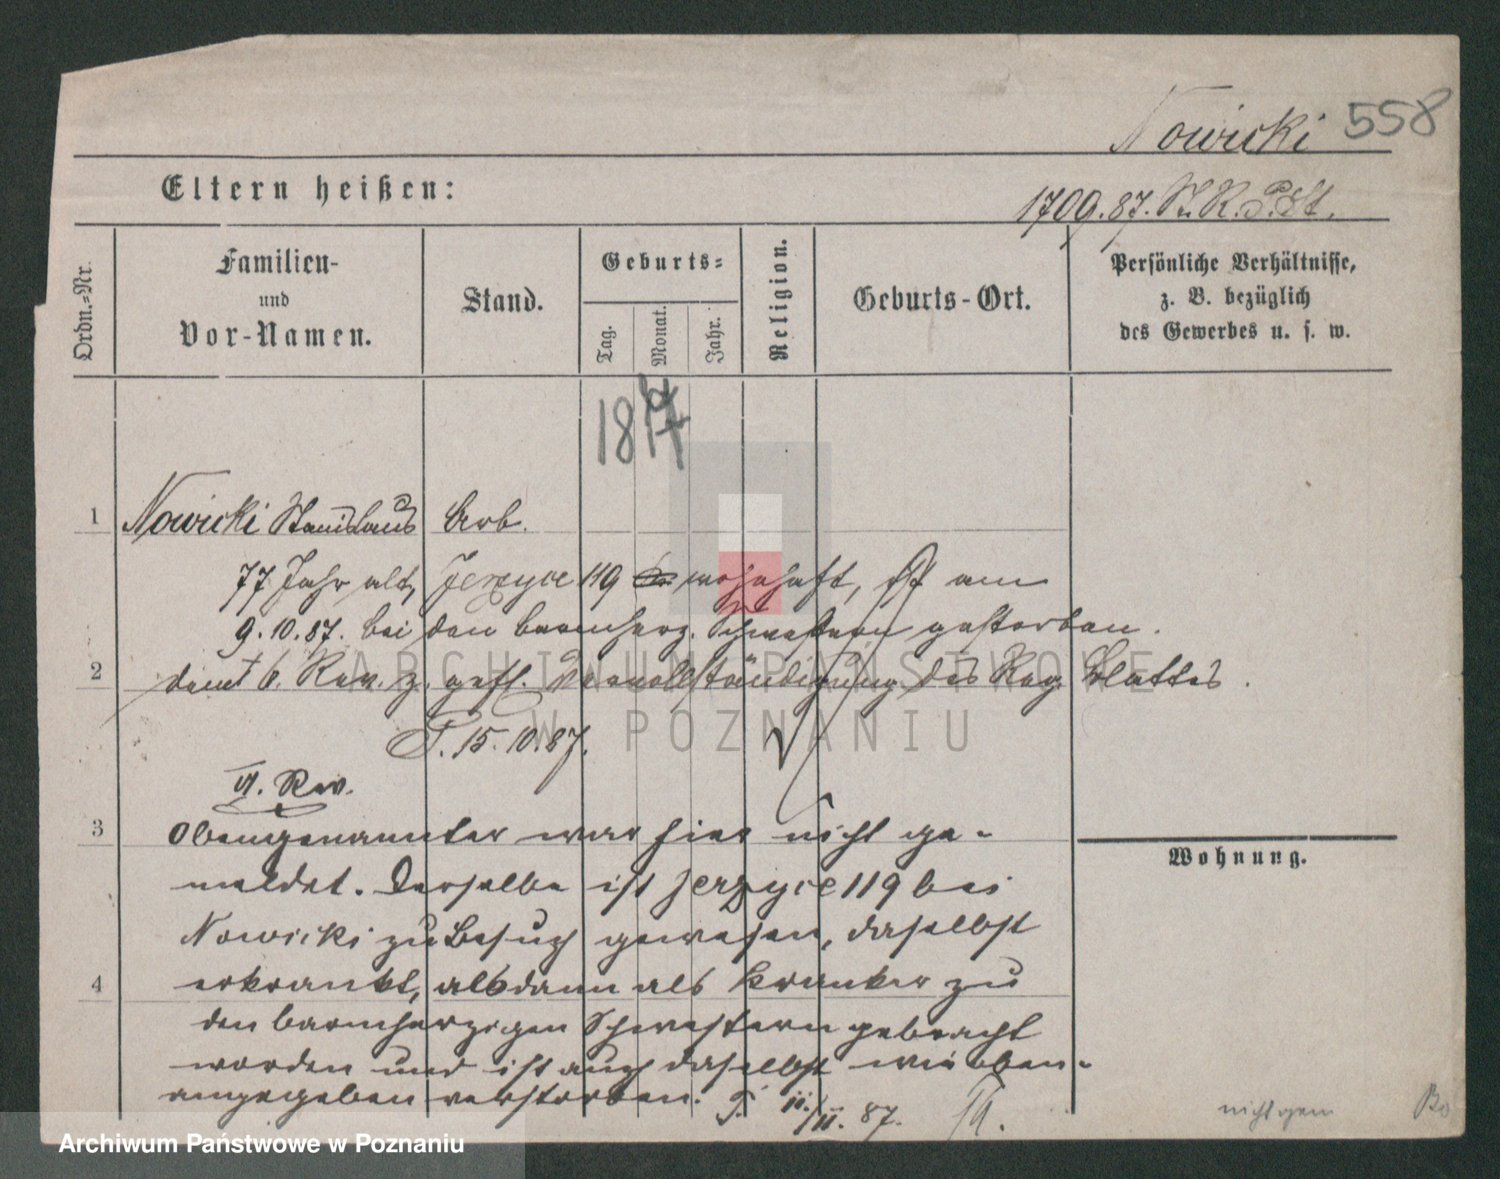 Nowicki 558
Eltern heißen:
1709.87. St. R. P. St.
Ordn.-Nr.
Familien-
und
Vor-Namen.
Stand.
Geburts-
Tag.
Monat.
Jahr.
Religion.
Geburts-Ort.
Persönliche Verhältnisse,
z. B. bezüglich
des Gewerbes u. s. w.
18
1 Nowicki Stanislaus Arb.
77 Jahr alt, Jerzyce 119 wohnhaft, ist am
9.10.87. bei den barmherz. Schwestern gestorben.
2 dem 6. Rev. z. gefl. Vervollständigung des Reg. Blattes.
P. 15.10.87.
VI. Rev.
3 Obengenannter war hier nicht ge-
meldet. Derselbe ist Jerzyce 119 bei
Nowicki zu Besuch gewesen, daselbst
4 erkrankt, alsdann als Kranker zu
den barmherzigen Schwestern gebracht
worden und ist auch daselbst wie oben-
angegeben verstorben. P. 11. 87.
Wohnung.
nicht gem
ARCHIWUM PAŃSTWOWE
W POZNANIU
Archiwum Państwowe w Poznaniu